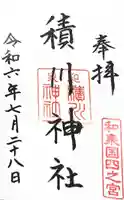 奉拝
和泉国四之宮
積川神社
令和六年七月二十八日